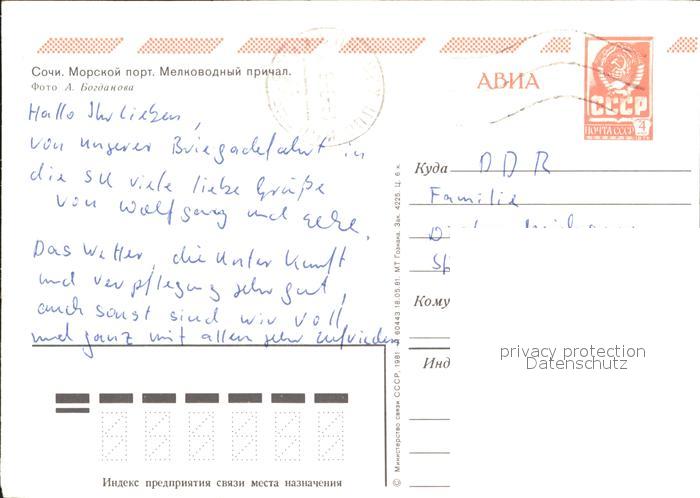 Сочи. Морской порт. Мелководный причал.
Фото А. Богданова
АВИА
СССР
ПОЧТА СССР 4
Hallo Ihr Lieben,
von unserer Briegadefahrt in
die SU viele liebe Grüße
von Wolfgang und
Das Wetter, die Unterkunft
und Verpflegung sehr gut,
auch sonst sind wir voll
und ganz mit allen sehr zufrieden
Куда DDR
Familie
Кому
Инд
privacy protection
Datenschutz
© Министерство связи СССР, 1981 З 60443 18.05.81. МТ Гознака. Зак. 4225. Ц. 6 к.
Индекс предприятия связи места назначения